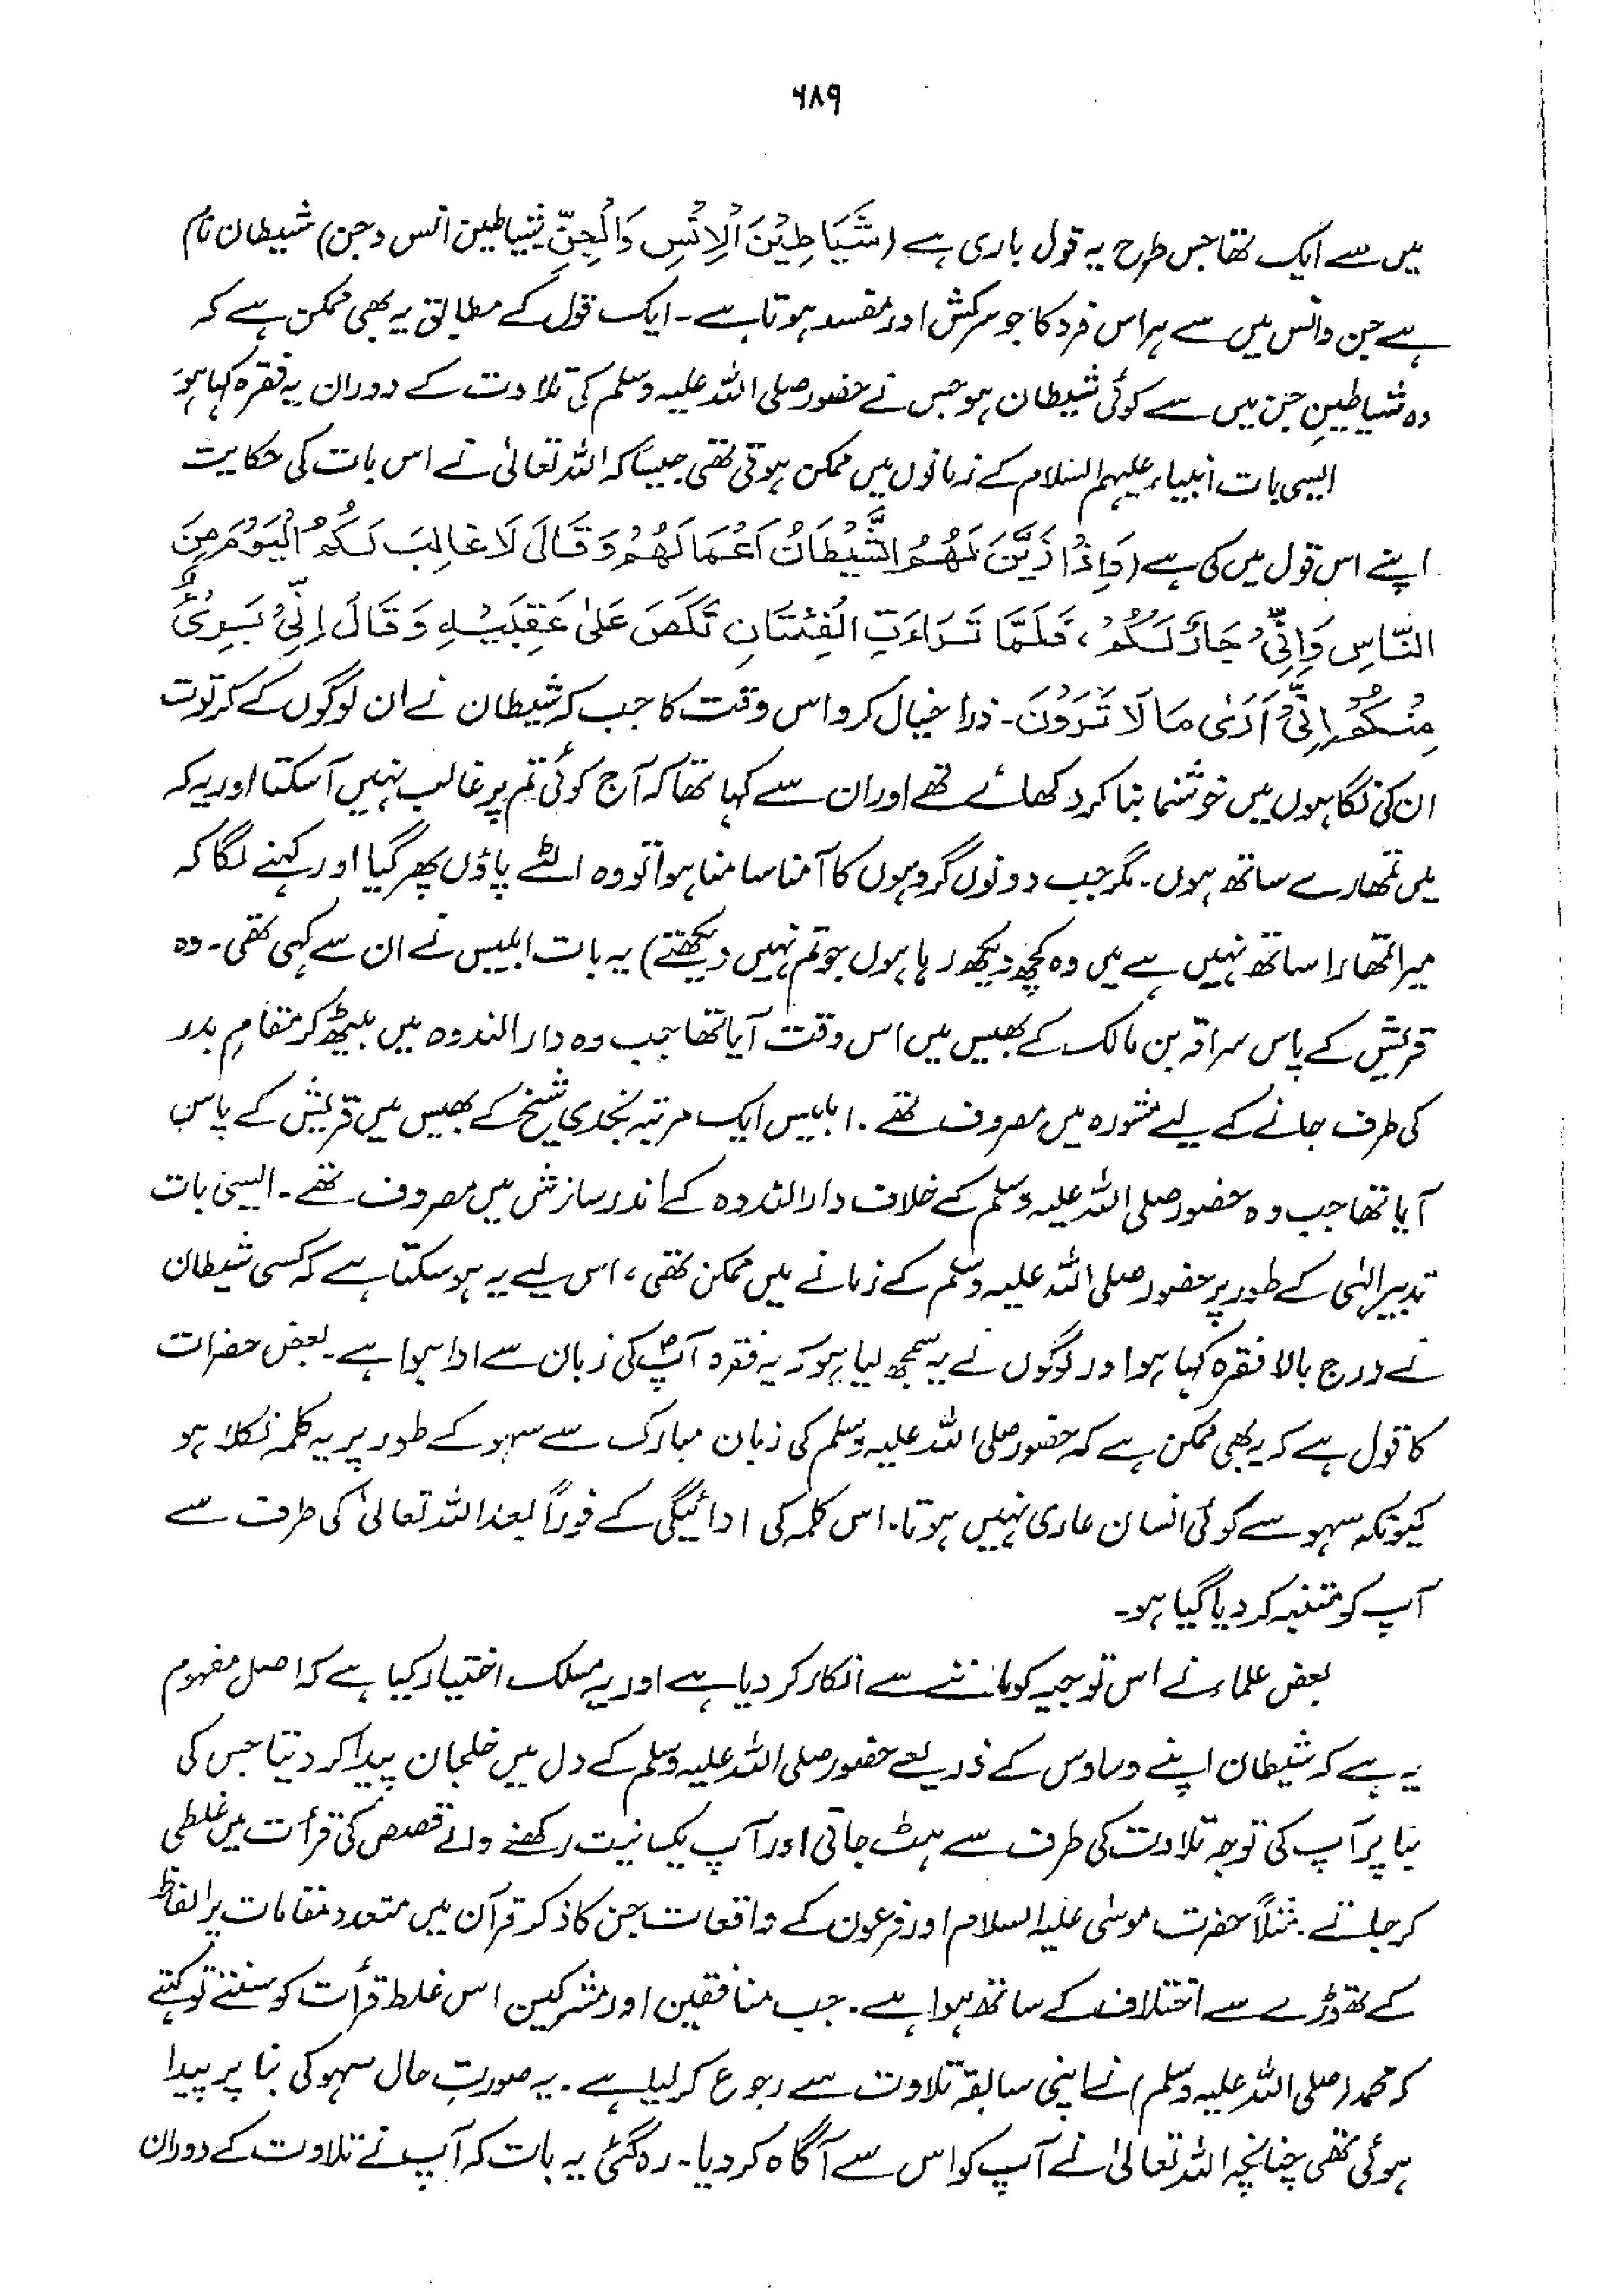 ۶۸۹
میں سے ایک تھا جس طرح یہ قول باری ہے (شَیَاطِیْنَ الْاِنْسِ وَالْجِنِّ شیاطین انس و جن) شیطان نام
ہے جن و انس میں سے ہر اس فرد کا جو سرکش اور مفسد ہوتا ہے۔ ایک قول کے مطابق یہ بھی ممکن ہے کہ
وہ شیاطینِ جن میں سے کوئی شیطان ہو جس نے حضور صلی اللہ علیہ وسلم کی تلاوت کے دوران یہ فقرہ کہا ہو۔
ایسی بات انبیاء علیہم السلام کے زمانوں میں ممکن ہوتی تھی جیسا کہ اللہ تعالیٰ نے اس بات کی حکایت
اپنے اس قول میں کی ہے (وَاِذْ زَیَّنَ لَھُمُ الشَّیْطَانُ اَعْمَالَھُمْ وَقَالَ لَا غَالِبَ لَکُمُ الْیَوْمَ مِنَ
النَّاسِ وَاِنِّیْ جَارٌ لَّکُمْ، فَلَمَّا تَرَاءَتِ الْفِئَتَانِ نَکَصَ عَلٰی عَقِبَیْہِ وَقَالَ اِنِّیْ بَرِیْٓءٌ
مِنْکُمْ اِنِّیْ اَرٰی مَا لَا تَرَوْنَ۔ ذرا خیال کرو اس وقت کا جب کہ شیطان نے ان لوگوں کے کرتوت
ان کی نگاہوں میں خوشنما بنا کر دکھائے تھے اور ان سے کہا تھا کہ آج کوئی تم پر غالب نہیں آسکتا اور یہ کہ
میں تمھارے ساتھ ہوں۔ مگر جب دونوں گروہوں کا آمنا سامنا ہوا تو وہ الٹے پاؤں پھر گیا اور کہنے لگا کہ
میرا تمھارا ساتھ نہیں ہے میں وہ کچھ دیکھ رہا ہوں جو تم نہیں دیکھتے) یہ بات ابلیس نے ان سے کہی تھی۔ وہ
قریش کے پاس سراقہ بن مالک کے بھیس میں اس وقت آیا تھا جب وہ دارالندوہ میں بیٹھ کر مقامِ بدر
کی طرف جانے کے لیے مشورہ میں مصروف تھے۔ ابلیس ایک مرتبہ نجدی شیخ کے بھیس میں قریش کے پاس
آیا تھا جب وہ حضور صلی اللہ علیہ وسلم کے خلاف دارالندوہ کے اندر سازش میں مصروف تھے۔ ایسی بات
تدبیر الٰہی کے طور پر حضور صلی اللہ علیہ وسلم کے زمانے میں ممکن تھی، اس لیے یہ ہوسکتا ہے کہ کسی شیطان
نے درج بالا فقرہ کہا ہو اور لوگوں نے یہ سمجھ لیا ہو کہ یہ فقرہ آپؐ کی زبان سے ادا ہوا ہے۔ بعض حضرات
کا قول ہے کہ یہ بھی ممکن ہے کہ حضور صلی اللہ علیہ وسلم کی زبان مبارک سے سہو کے طور پر یہ کلمہ نکلا ہو
کیونکہ سہو سے کوئی انسان عاری نہیں ہوتا۔ اس کلمہ کی ادائیگی کے فوراً بعد اللہ تعالیٰ کی طرف سے
آپ کو متنبہ کر دیا گیا ہو۔
بعض علماء نے اس توجیہ کو ماننے سے انکار کر دیا ہے اور یہ مسلک اختیار کیا ہے کہ اصل مفہوم
یہ ہے کہ شیطان اپنے وساوس کے ذریعے حضور صلی اللہ علیہ وسلم کے دل میں خلجان پیدا کر دیتا جس کی
بنا پر آپ کی توجہ تلاوت کی طرف سے ہٹ جاتی اور آپ یکسانیت رکھنے والے قصص کی قرأت میں غلطی
کر جاتے۔ مثلاً حضرت موسیٰ علیہ السلام اور فرعون کے واقعات جن کا ذکر قرآن میں متعدد مقامات پر الفاظ
کے تھوڑے سے اختلاف کے ساتھ ہوا ہے۔ جب منافقین اور مشرکین اس غلط قرأت کو سنتے تو کہتے
کہ محمد (صلی اللہ علیہ وسلم) نے اپنی سابقہ تلاوت سے رجوع کرلیا ہے۔ یہ صورتِ حال سہو کی بنا پر پیدا
ہوئی تھی چنانچہ اللہ تعالیٰ نے آپ کو اس سے آگاہ کر دیا۔ رہ گئی یہ بات کہ آپ نے تلاوت کے دوران